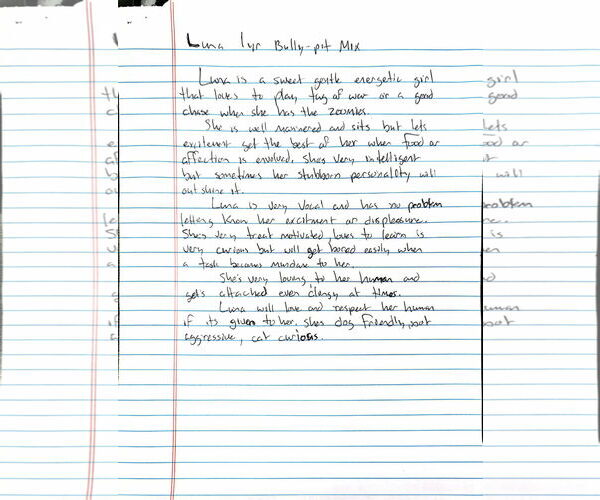 Luna 1yr Bully-pit Mix
Luna is a sweet gentle energetic girl
that loves to play, tug of war or a good
chase when she has the zoomies.
She is well mannered and sits but lets
excitement get the best of her when food or
affection is involved, she's very intelligent
but sometimes her stubborn personality will
out shine it.
Luna is very vocal and has no problem
letting know her excitment or displeasure.
She's very treat motivated, loves to learn is
very curious but will get bored easily when
a task becomes mundane to her.
She's very loving to her human and
get's attached even clingy at times.
Luna will love and respect her human
if its given to her. she's dog friendly, not
aggressive, cat curious.